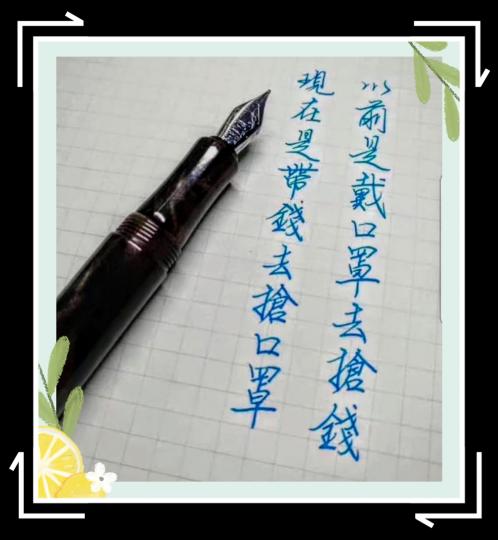 以前是戴口罩去搶錢
現在是帶錢去搶口罩